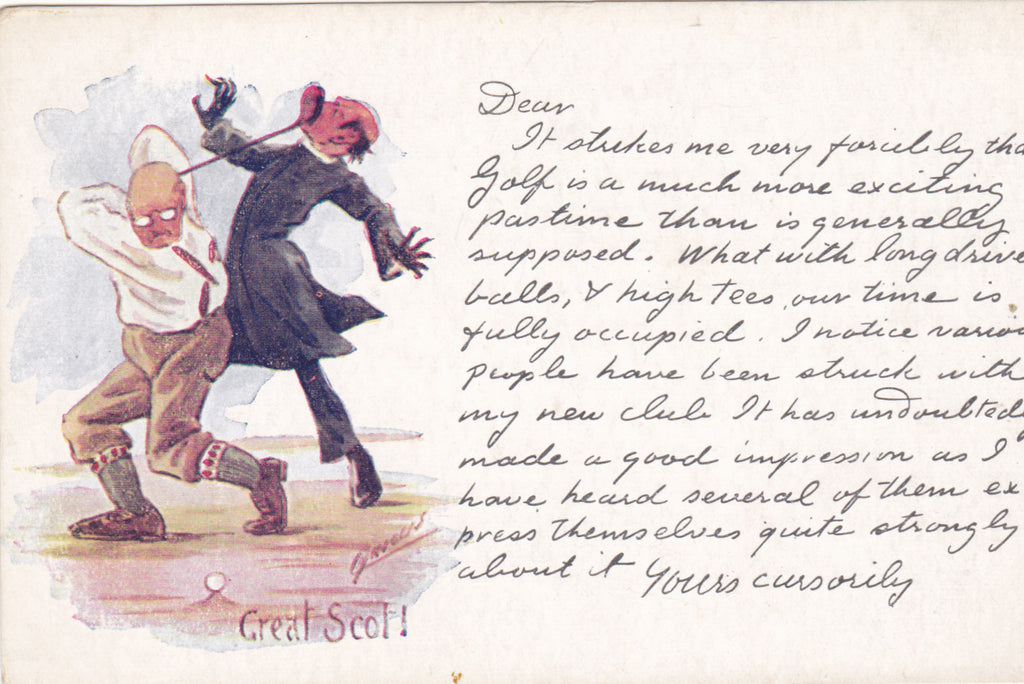 Dear
It strikes me very forcibly tha
Golf is a much more exciting
pastime than is generally
supposed. What with long drive
balls, & high tees, our time is
fully occupied. I notice variou
people have been struck with
my new club It has undoubted
made a good impression as I
have heard several of them ex
press themselves quite strongly
about it Yours cursorily
Great Scot!